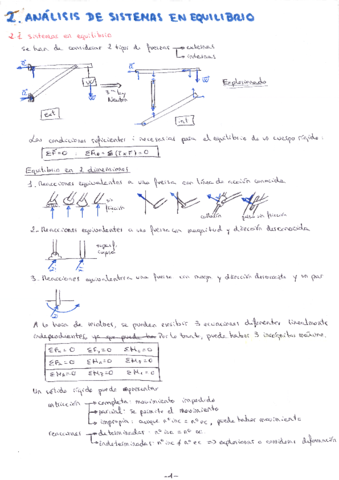 2. ANÁLISIS DE SISTEMAS EN EQUILIBRIO
2.1 Sistemas en equilibrio
Se han de considerar 2 tipos de fuerzas → externas
→ internas
3rd ley
Newton
Explosionado
Ext
int
Las condiciones suficientes y necesarias para el equilibrio de un cuerpo rígido:
Equilibrio en 2 dimensiones
1. Reacciones equivalentes a una fuerza con línea de acción conocida
collarín
2. Reacciones equivalentes a una fuerza con magnitud y dirección desconocida
3. Reacciones equivalentes a una fuerza con magn. y dirección desconocida y un par
A la hora de resolver, se pueden escribir 3 ecuaciones diferentes linealmente
independientes, Por lo tanto, puede haber 3 incógnitas máximo.
ΣFx=0 ΣFy=0 ΣMA=0
Un sólido rígido puede representar
sujección → completa: movimiento impedido
→ parcial: se permite el movimiento
→ impropia: aunque nº inc = nº ec, puede haber movimiento
reacciones → determinadas: nº inc = nº ec
→ indeterminadas: nº inc ≠ nº ec → explosionar o considerar deformación
-1-